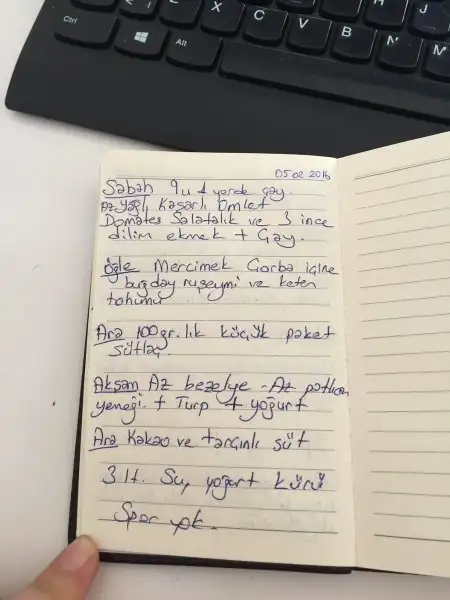 Ctrl
Alt
X
C
V
B
N
M
H
J
05 02 2016
Sabah
yerde çay.
Az yağlı Kaşarlı Omlet
Domates Salatalık ve 3 ince
dilim ekmek + Çay.
öğle Mercimek Çorba içine
buğday ruşeymi ve keten
tohumu
Ara 100 gr. lık küçük paket
sütlaç.
Akşam Az bezelye - Az patlıcan
yemeği. + Turp + yoğurt
Ara Kakao ve tarçınlı süt
3 lt. Su, yoğurt kürü
Spor yok.